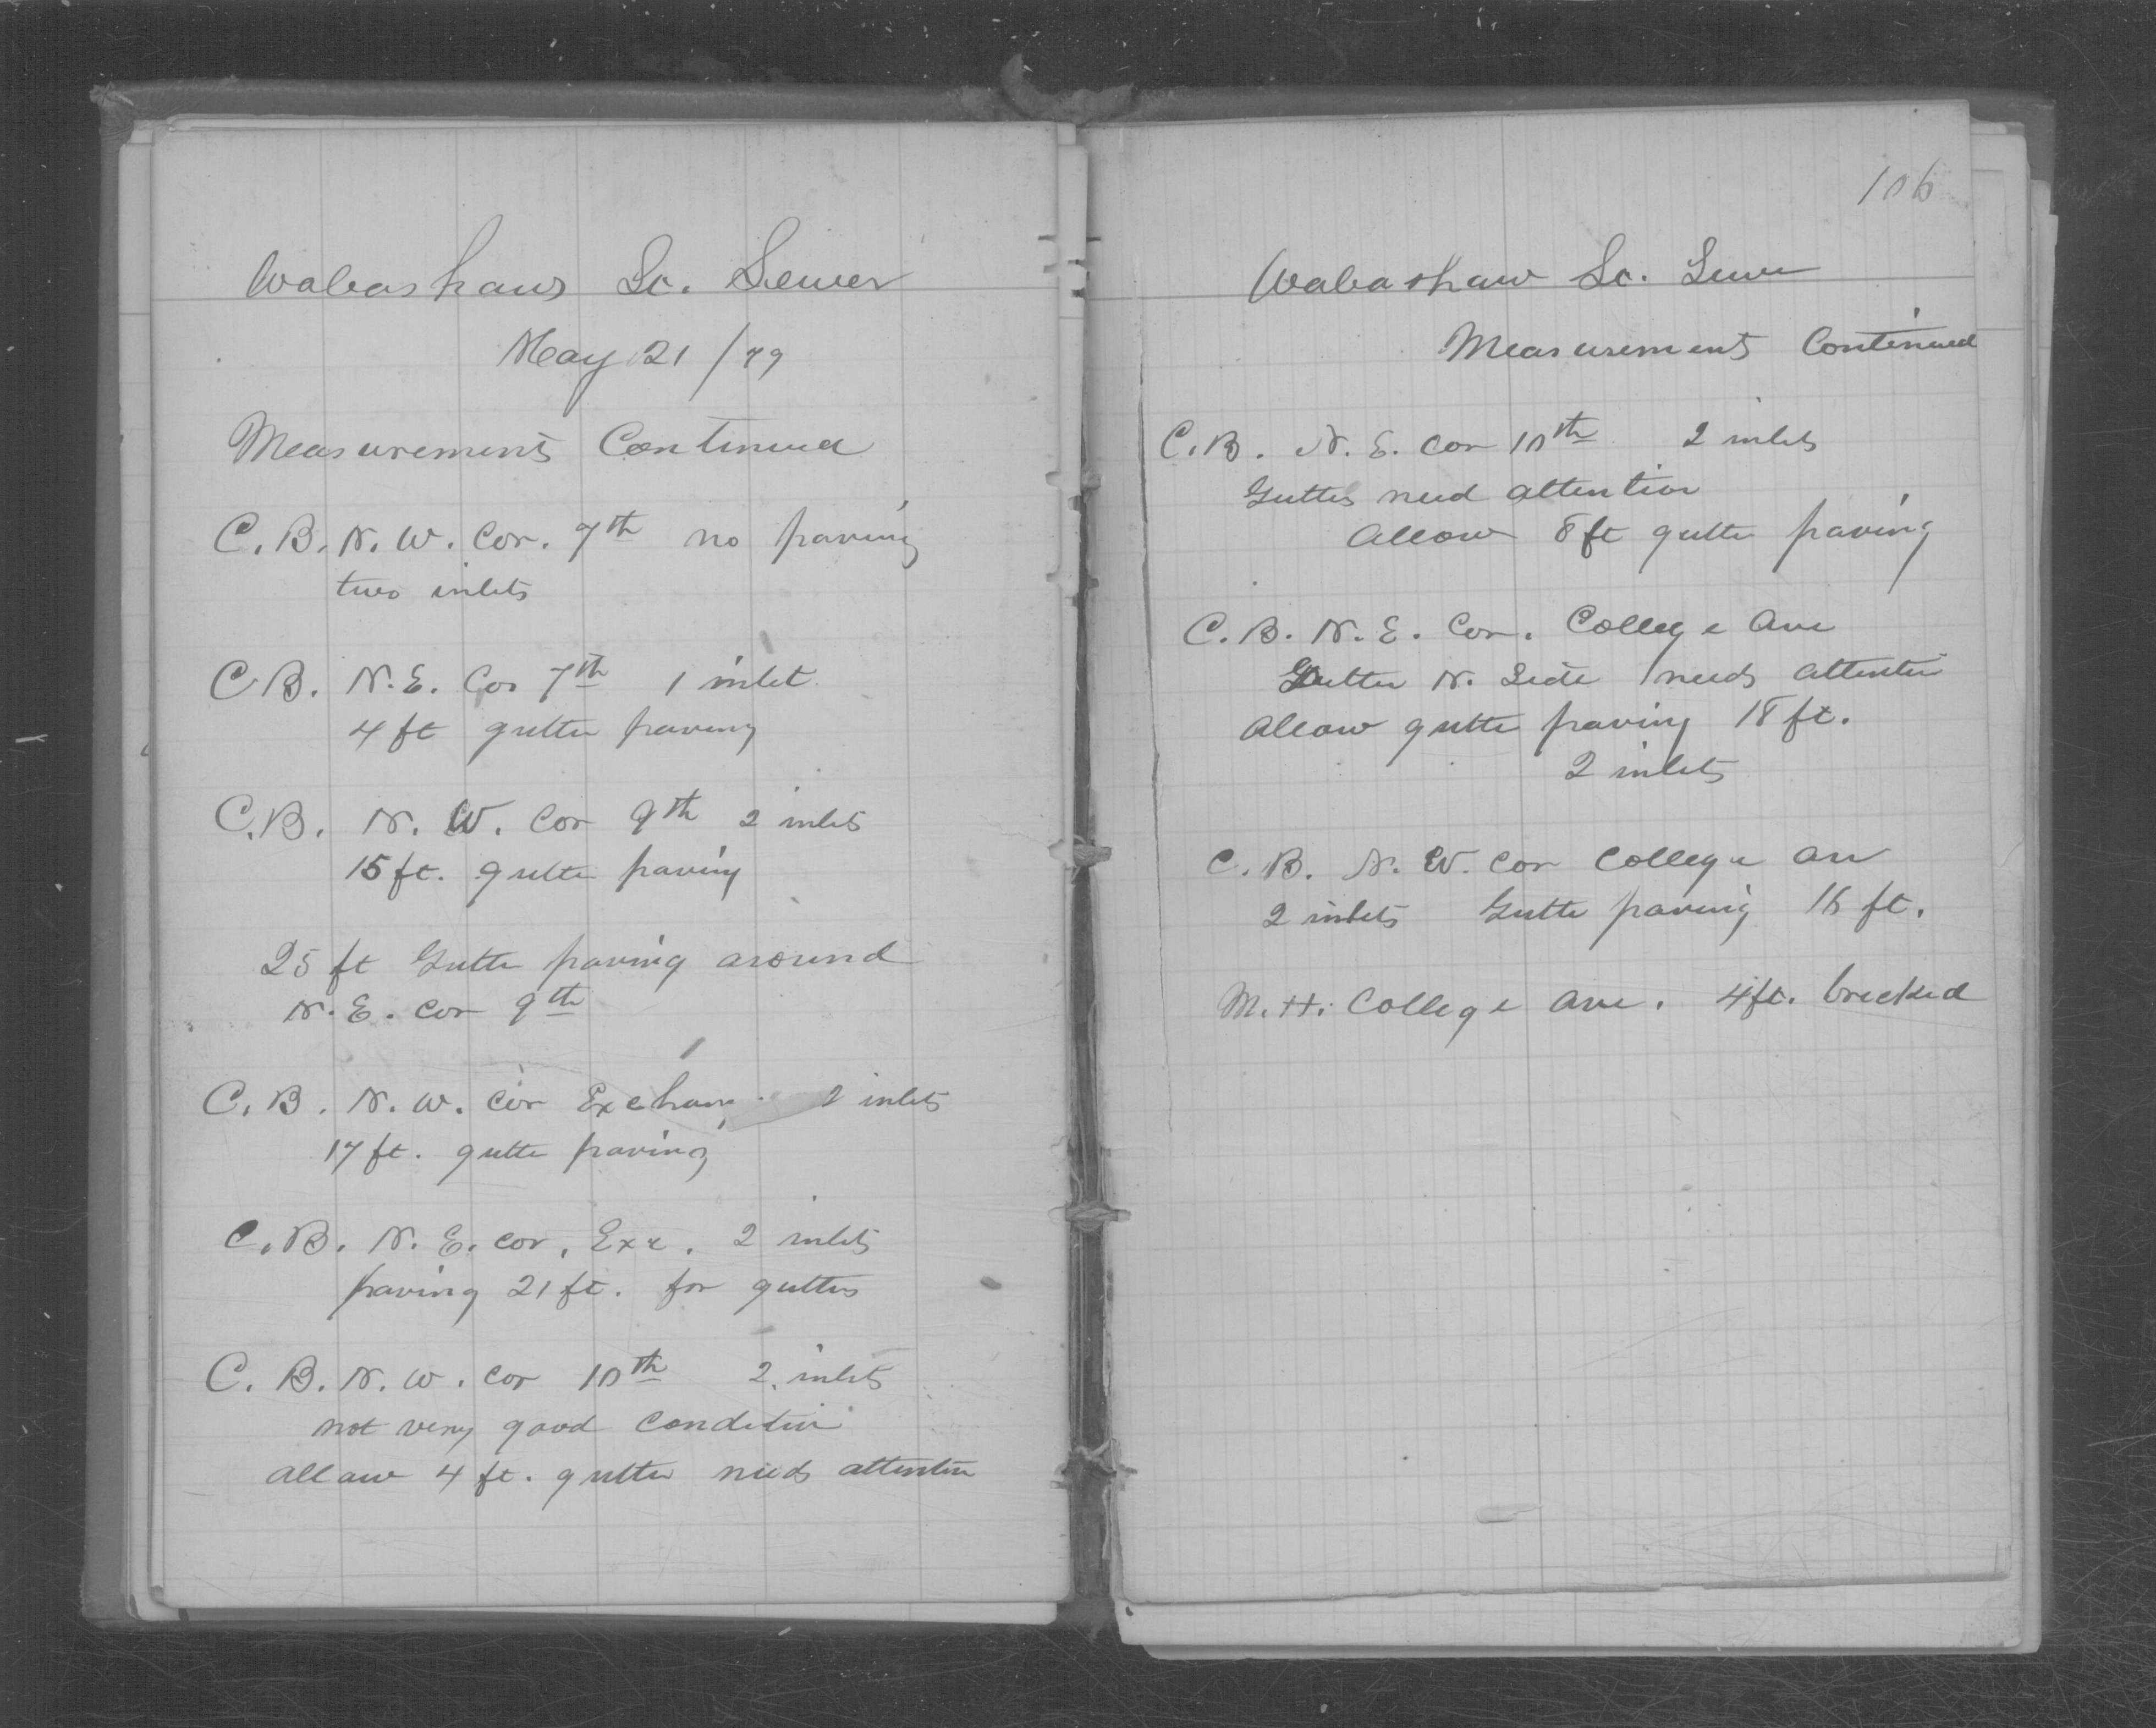 Wabashaw St. Sewer
May 21/79
Measurements Continued
C. B. N. W. Cor. 7th no paving
two inlets
C B. N. E. Cor 7th 1 inlet
4 ft gutter paving
C. B. N. W. Cor 9th 2 inlets
15 ft. gutter paving
25 ft Gutter paving around
N. E. cor 9th
C. B. N. W. Cor Exchange 2 inlets
17 ft. gutter paving
C. B. N. E. cor, Exc. 2 inlets
paving 21 ft. for gutters
C. B. N. W. cor 10th 2 inlets
not very good condition
allow 4 ft. gutter needs attention
106
Wabashaw St. Sewer
Measurements Continued
C. B. N. E. Cor 10th 2 inlets
Gutters need attention
Allow 8 ft gutter paving
C. B. N. E. Cor. College Ave
Gutter N. Side needs attention
Allow gutter paving 18 ft.
2 inlets
C. B. N. W. Cor College Ave
2 inlets Gutter paving 16 ft.
M. H. College Ave. 4 ft. bricked